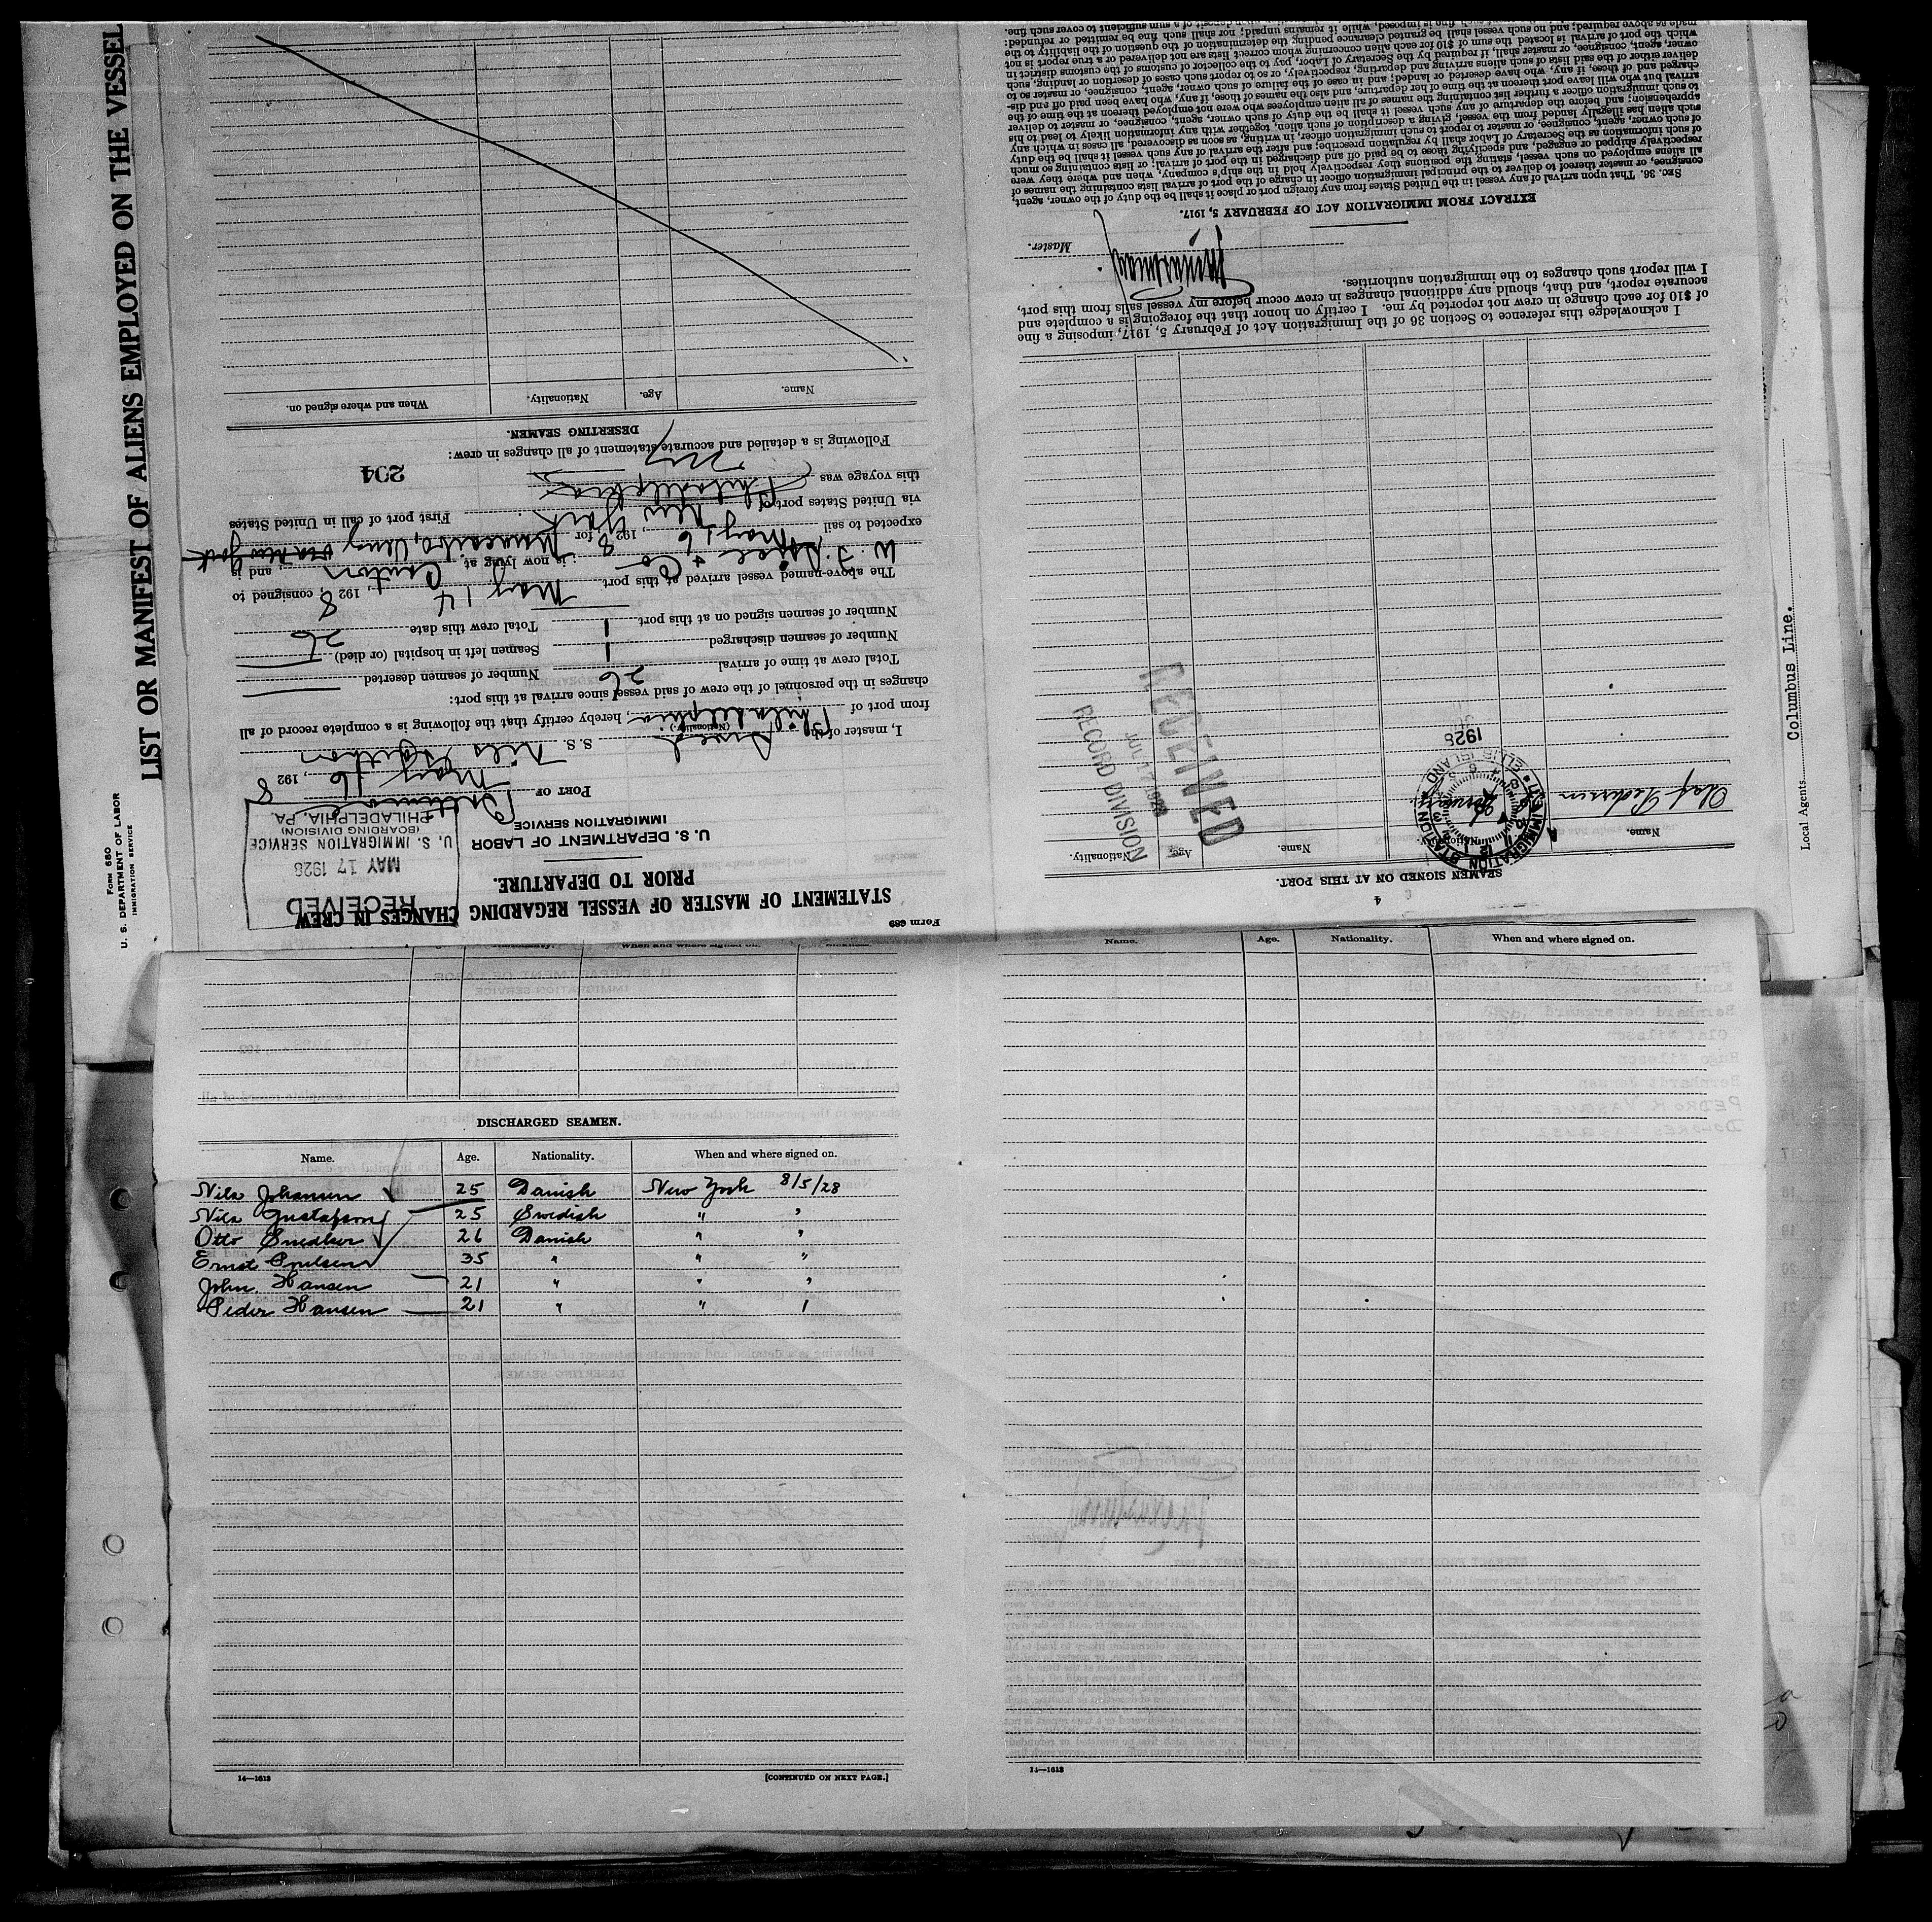 LIST OR MANIFEST OF ALIENS EMPLOYED ON THE VESSEL
FORM 680
U. S. DEPARTMENT OF LABOR
IMMIGRATION SERVICE
Columbus Line.
Local Agents
Form 689
STATEMENT OF MASTER OF VESSEL REGARDING CHANGES IN CREW
PRIOR TO DEPARTURE.
U. S. DEPARTMENT OF LABOR
IMMIGRATION SERVICE
RECEIVED
MAY 17 1928
U. S. IMMIGRATION SERVICE
(BOARDING DIVISION)
PHILADELPHIA, PA.
PORT OF Baltimore
May 16, 1928
I, master of the Swed S. S. Nils
(Nationality.)
from port of Philadelphia, hereby certify that the following is a complete record of all
changes in the personnel of the crew of said vessel since arrival at this port:
Total crew at time of arrival 26 Number of seamen deserted
Number of seamen discharged 1 Seamen left in hospital (or died)
Number of seamen signed on at this port 1 Total crew this date 26
The above-named vessel arrived at this port May 14, 1928, consigned to
W. J. & Co; is now lying at Canton, and is
expected to sail May 16, 1928 for Maracaibo, via New York
via United States port of New York First port of call in United States
this voyage was Philadelphia
204
Following is a detailed and accurate statement of all changes in crew:
DESERTING SEAMEN.
Name. Age. Nationality. When and where signed on.
4
SEAMEN SIGNED ON AT THIS PORT.
Name. Nationality. Name. Age. Nationality.
Olaf Pedersen
IMMIGRATION STATION
ELLIS ISLAND
1928
RECEIVED
JUL 17 1928
RECORD DIVISION
I acknowledge this reference to Section 36 of the Immigration Act of February 5, 1917, imposing a fine
of $10 for each change in crew not reported by me. I certify on honor that the foregoing is a complete and
accurate report, and that, should any additional changes in crew occur before my vessel sails from this port,
I will report such changes to the immigration authorities.
Master.
EXTRACT FROM IMMIGRATION ACT OF FEBRUARY 5, 1917.
SEC. 36. That upon arrival of any vessel in the United States from any foreign port or place it shall be the duty of the owner, agent,
consignee, or master thereof to deliver to the principal immigration officer in charge of the port of arrival lists containing the names of
all aliens employed on such vessel, stating the positions they respectively hold in the ship's company, when and where they were
respectively shipped or engaged, and specifying those to be paid off and discharged in the port of arrival; or lists containing so much
of such information as the Secretary of Labor shall by regulation prescribe; and after the arrival of any such vessel it shall be the duty
of such owner, agent, consignee, or master to report to such immigration officer, in writing, as soon as discovered, all cases in which any
such alien has illegally landed from the vessel, giving a description of such alien, together with any information likely to lead to his
apprehension; and before the departure of any such vessel it shall be the duty of such owner, agent, consignee, or master to deliver
to such immigration officer a further list containing the names of all alien employees who were not employed thereon at the time of the
arrival but who will leave port thereon at the time of her departure, and also the names of those, if any, who have been paid off and dis-
charged and of those, if any, who have deserted or landed; and in case of the failure of such owner, agent, consignee, or master so to
deliver either of the said lists of such aliens arriving and departing, respectively, or so to report such cases of desertion or landing, such
owner, agent, consignee, or master, shall, if required by the Secretary of Labor, pay to the collector of customs of the customs district in
which the port of arrival is located the sum of $10 for each alien concerning whom correct lists are not delivered or a true report is not
made as above required; and no such vessel shall be granted clearance pending the determination of the question of the liability to the
Name. Age. Nationality. When and where signed on.
DISCHARGED SEAMEN.
Name. Age. Nationality. When and where signed on.
Nils Johansen 25 Danish New York 8/5/28
Nils Gustafson 25 Swedish " "
Otto 26 Danish " "
Ernst 35 " " "
John Hansen 21 " " "
Peder Hansen 21 " "
14—1613
[CONTINUED ON NEXT PAGE.]
14—1613